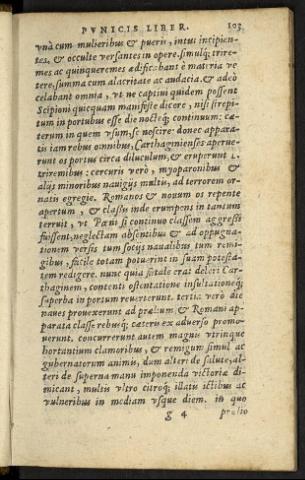 PVNICIS LIBER. 103
vnà cum mulieribus & pueris, intus incipien-
tes, & occulte versantes in opere. simulq; trire-
mes ac quinqueremes ædificabant è materia ve
tere, summa cum alacritate ac audacia. & adeò
celabant omnia, vt ne captiui quidem possent
Scipioni quicquam manifeste dicere, nisi strepi-
tum in portubus esse die nocteq; continuum: cæ-
terum in quem vsum, se nescire. donec appara-
tis iam rebus omnibus, Carthaginienses aperue-
runt os portus circa diluculum, & eruperunt L.
triremibus: cercuris verò, myoparonibus &
alijs minoribus nauigijs multis, ad terrorem or-
natis egregie. Romanos & nouum os repente
apertum, & classis inde erumpens in tantum
terruit, vt Pœni si continuo classem aggressi
fuissent, neglectam absentibus & ad oppugna-
tionem versis tum socijs naualibus tum remi-
gibus, facile totam potuerint in suam potestá-
tem redigere. nunc quia fatale erat deleri Car-
thaginem, contenti ostentatione insultationeq;
superba in portum reuerterunt. tertia verò die
naues prouexerunt ad prælium. & Romani ap-
parata classe rebusq; cæteris ex aduerso promo-
uerunt. concurrerunt autem magnis vtrinque
hortantium clamoribus, & remigum simul ac
gubernatorum animis, dum alteri de salute, al-
teri de superna manu imponenda victoriæ di-
micant, multis vltro citroq; illatis ictibus ac
vulneribus in mediam vsque diem. in quo
g 4 prælio